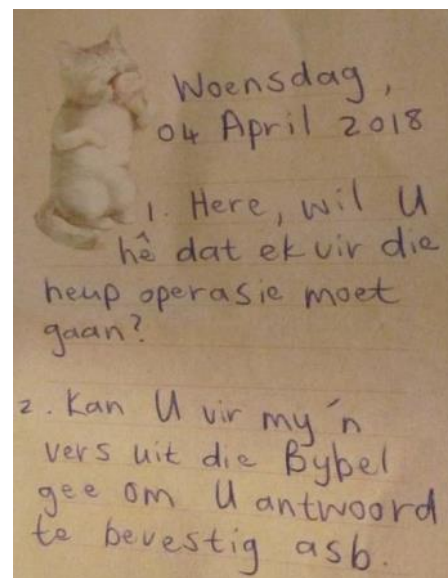 Woensdag,
04 April 2018
1. Here, wil U
hê dat ek vir die
heup operasie moet
gaan?
2. Kan U vir my 'n
vers uit die Bybel
gee om U antwoord
te bevestig asb.